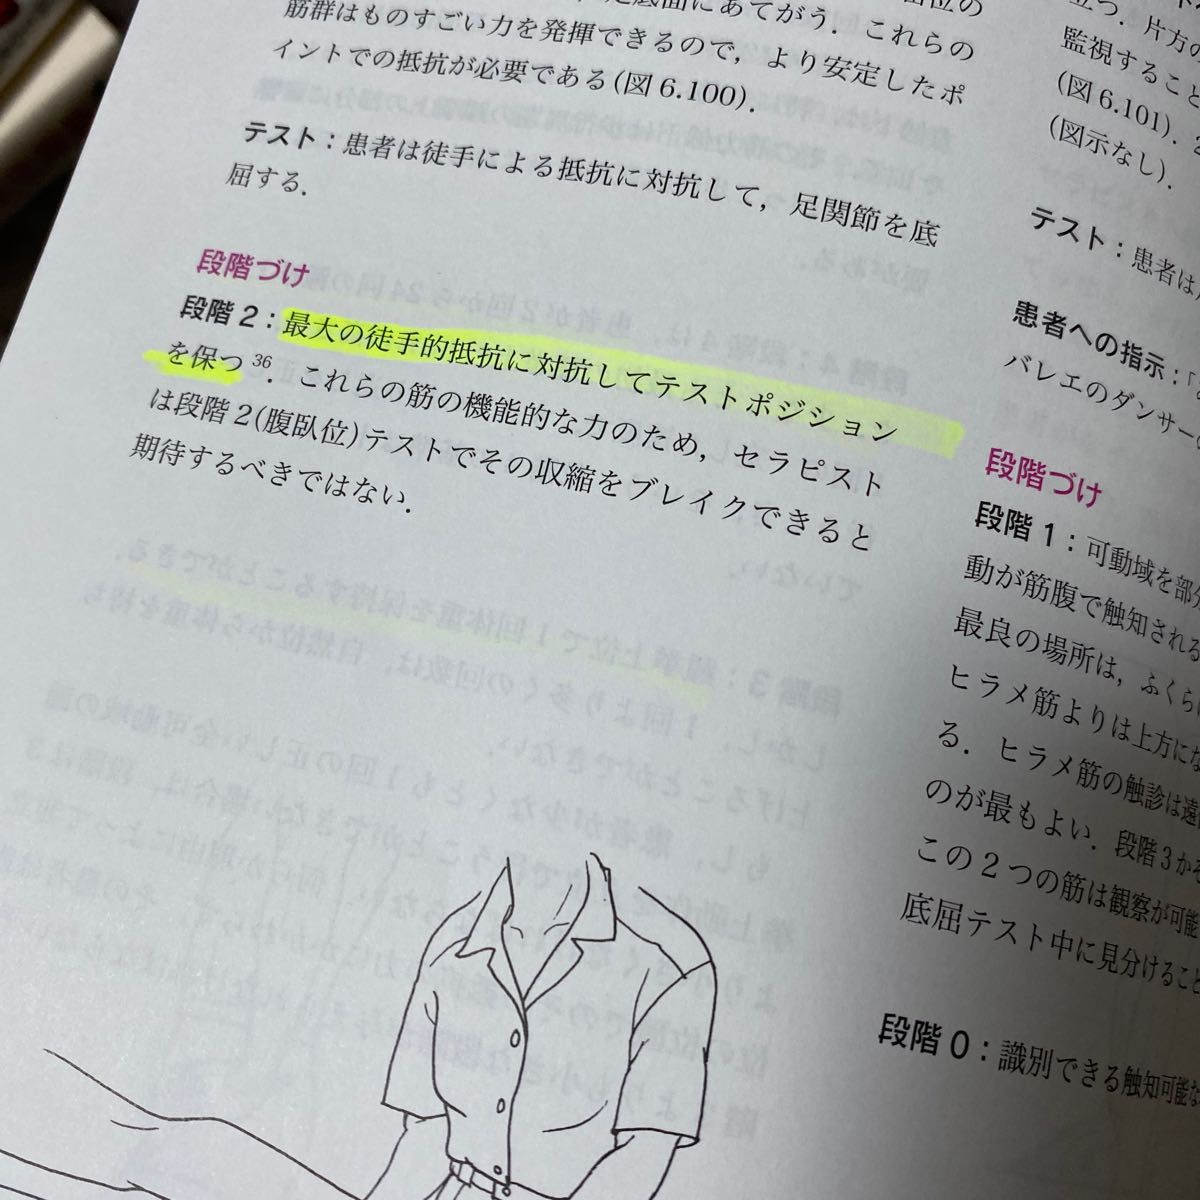 底面にあてがう．これらの
筋群はものすごい力を発揮できるので，より安定したポ
イントでの抵抗が必要である(図 6.100)．
テスト：患者は徒手による抵抗に対抗して，足関節を底
屈する．
段階づけ
段階 2：最大の徒手的抵抗に対抗してテストポジション
を保つ 36．これらの筋の機能的な力のため，セラピスト
は段階 2(腹臥位)テストでその収縮をブレイクできると
期待するべきではない．
立つ．片方の
監視すること
(図 6.101)．
(図示なし)．
テスト：患者は
患者への指示：「
バレエのダンサー
段階づけ
段階 1：可動域を部分
動が筋腹で触知される
最良の場所は，ふくら
ヒラメ筋よりは上方にな
る．ヒラメ筋の触診は遠
のが最もよい．段階 3 か
この 2 つの筋は観察が可能
底屈テスト中に見分けること
段階 0：識別できる触知可能な